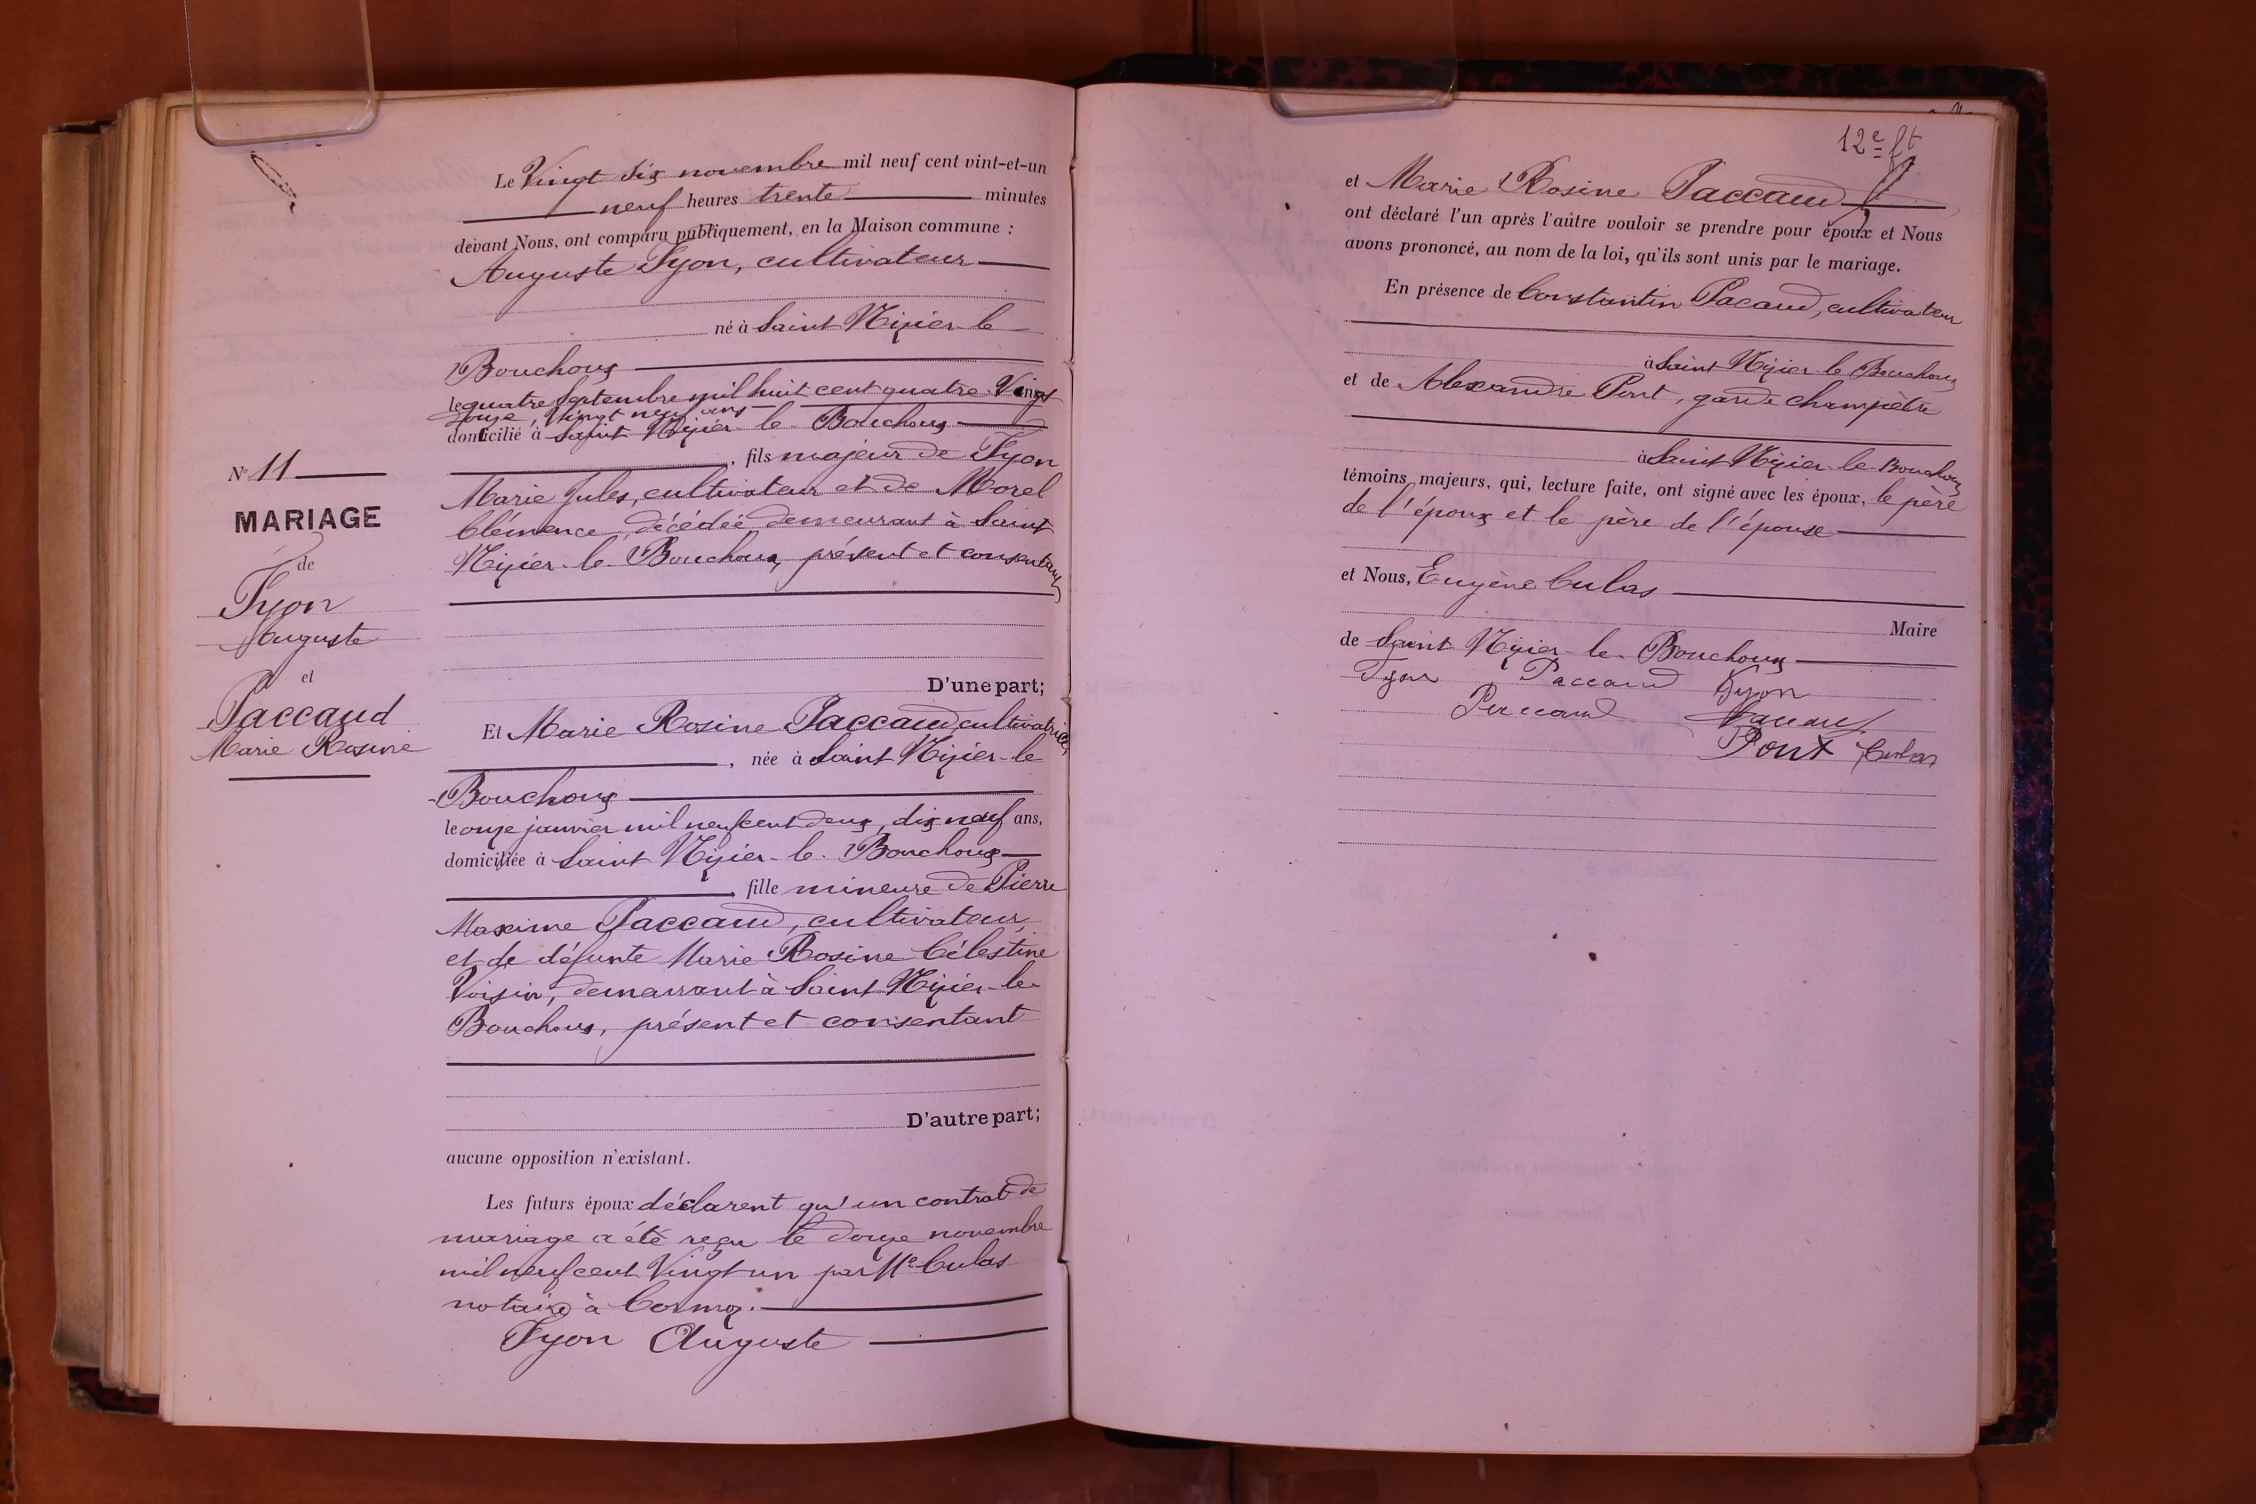 Le Vingt six novembre mil neuf cent vint-et-un
neuf heures trente minutes
devant Nous, ont comparu publiquement, en la Maison commune :
Auguste Fyon, cultivateur
né à Saint Nizier-le
Bouchoux
le quatre Septembre mil huit cent quatre-Vingt
douze, Vingt neuf ans
domicilié à Saint Nizier-le-Bouchoux
, fils majeur de Fyon
Marie Jules, cultivateur et de Morel
Clémence, décédée, demeurant à Saint
Nizier-le-Bouchoux, présent et consentant
D'une part;
Et Marie Rosine Paccaud, cultivatrice,
, née à Saint Nizier-le
-Bouchoux
le onze janvier mil neuf cent deux, dix neuf ans,
domiciliée à Saint Nizier-le-Bouchoux
, fille mineure de Pierre
Maxime Paccaud, cultivateur,
et de défunte Marie Rosine Célestine
Voisin, demeurant à Saint Nizier-le-
Bouchoux, présent et consentant
D'autre part;
aucune opposition n'existant.
Les futurs époux déclarent qu'un contrat de
mariage a été reçu le douze novembre
mil neuf cent Vingt un par Me Culas
notaire à Cormoz.
Fyon Auguste
N° 11
MARIAGE
de
Fyon
Auguste
et
Paccaud
Marie Rosine
12e ft
et Marie Rosine Paccaud
ont déclaré l'un après l'aûtre vouloir se prendre pour époux et Nous
avons prononcé, au nom de la loi, qu'ils sont unis par le mariage.
En présence de Constantin Pacaud, cultivateur
à Saint Nizier-le-Bouchoux
et de Alexandre Pont, garde champêtre
à Saint Nizier-le-Bouchoux
témoins majeurs, qui, lecture faite, ont signé avec les époux, le père
de l'époux et le père de l'épouse
et Nous, Eugène Culas
Maire
de Saint Nizier-le-Bouchoux
Fyon Paccaud Fyon
Paccaud Pacaud
Pont Culas